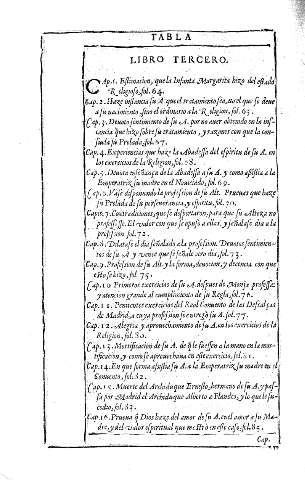 TABLA
LIBRO TERCERO.
CAp.1. Estimacion, que la Infanta Margarita hizo del estado
Religioso, fol. 64.
Cap.2. Haze instancia su A. que el tratamiento sea, no el que se deve
a su nacimiento, sino el ordinario a la Religion, fol. 65.
Cap.3. Devoto sentimiento de su A. por no aver obtenido en la ins-
tancia que hizo sobre su tratamiento, y razones con que la con-
suela su Prelada, fol. 67.
Cap.4. Experiencias que haze la Abadessa del espiritu de su A. en
los exercicios de la Religion, fol. 68.
Cap.5. enseñança de la Abadessa a su A. y como assistia a la
Emperatriz su madre en el Noviciado, fol. 69.
Cap.6. Vase disponiendo la profession de su Alt. Pruevas que haze
su Prelada de su perseverancia, y espiritu, fol. 70.
Cap.7. Contradiciones, que se despertaron, para que su Alteza no
professasse. El valor con que se opuso a ellas, y señalase dia a la
profession fol. 72.
Cap.8. Dilatase el dia señalado a la profession. Devotos sentimien-
tos de su A. y vence que se señale otro dia, fol. 73.
Cap.9. Profession de su Alt. y la forma, devocion, y decencia con que
se hizo, fol. 75.
Cap.10. Primeros exercicios de su A. despues de Monja professa:
y atencion grande al cumplimiento de su Regla, fol. 76.
Cap.11. Penitente exercicio del Real Convento de las Descalças
de Madrid, a cuya profession se ofreciò su A. fol. 77.
Cap.12. Alegria, y aprovechamiento de su A. en los exercicios de la
Religion, fol. 80.
Cap.13. Mortificacion de su A. de que le falte la mano en la mor-
tificacion, y como se aprovechava en este exercicio, fol. 81.
Cap.14. En que forma assistia su A. a la Emperatriz, su madre en el
Convento, fol. 82.
Cap.15. Muerte del Archiduque Ernesto, hermano de su A. y pas-
sa por Madrid el Archiduque Alberto a Flandes, y lo que le su-
cedio, fol. 83.
Cap.16. Prueva que Dios haze del amor de su A. en el amor a su Ma-
dre, y del valor espiritual que mostrò en este caso, fol. 85.
Cap.